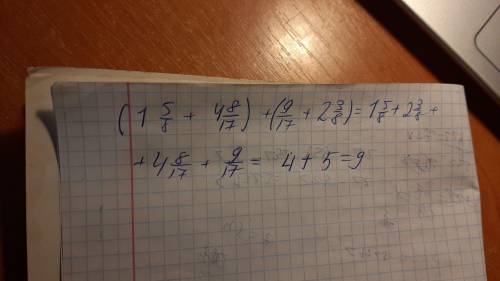 (1 5/8 + 4 8/17) + (9/17 + 2 3/8) = 1 5/8 + 2 3/8 +
+ 4 8/17 + 9/17 = 4 + 5 = 9